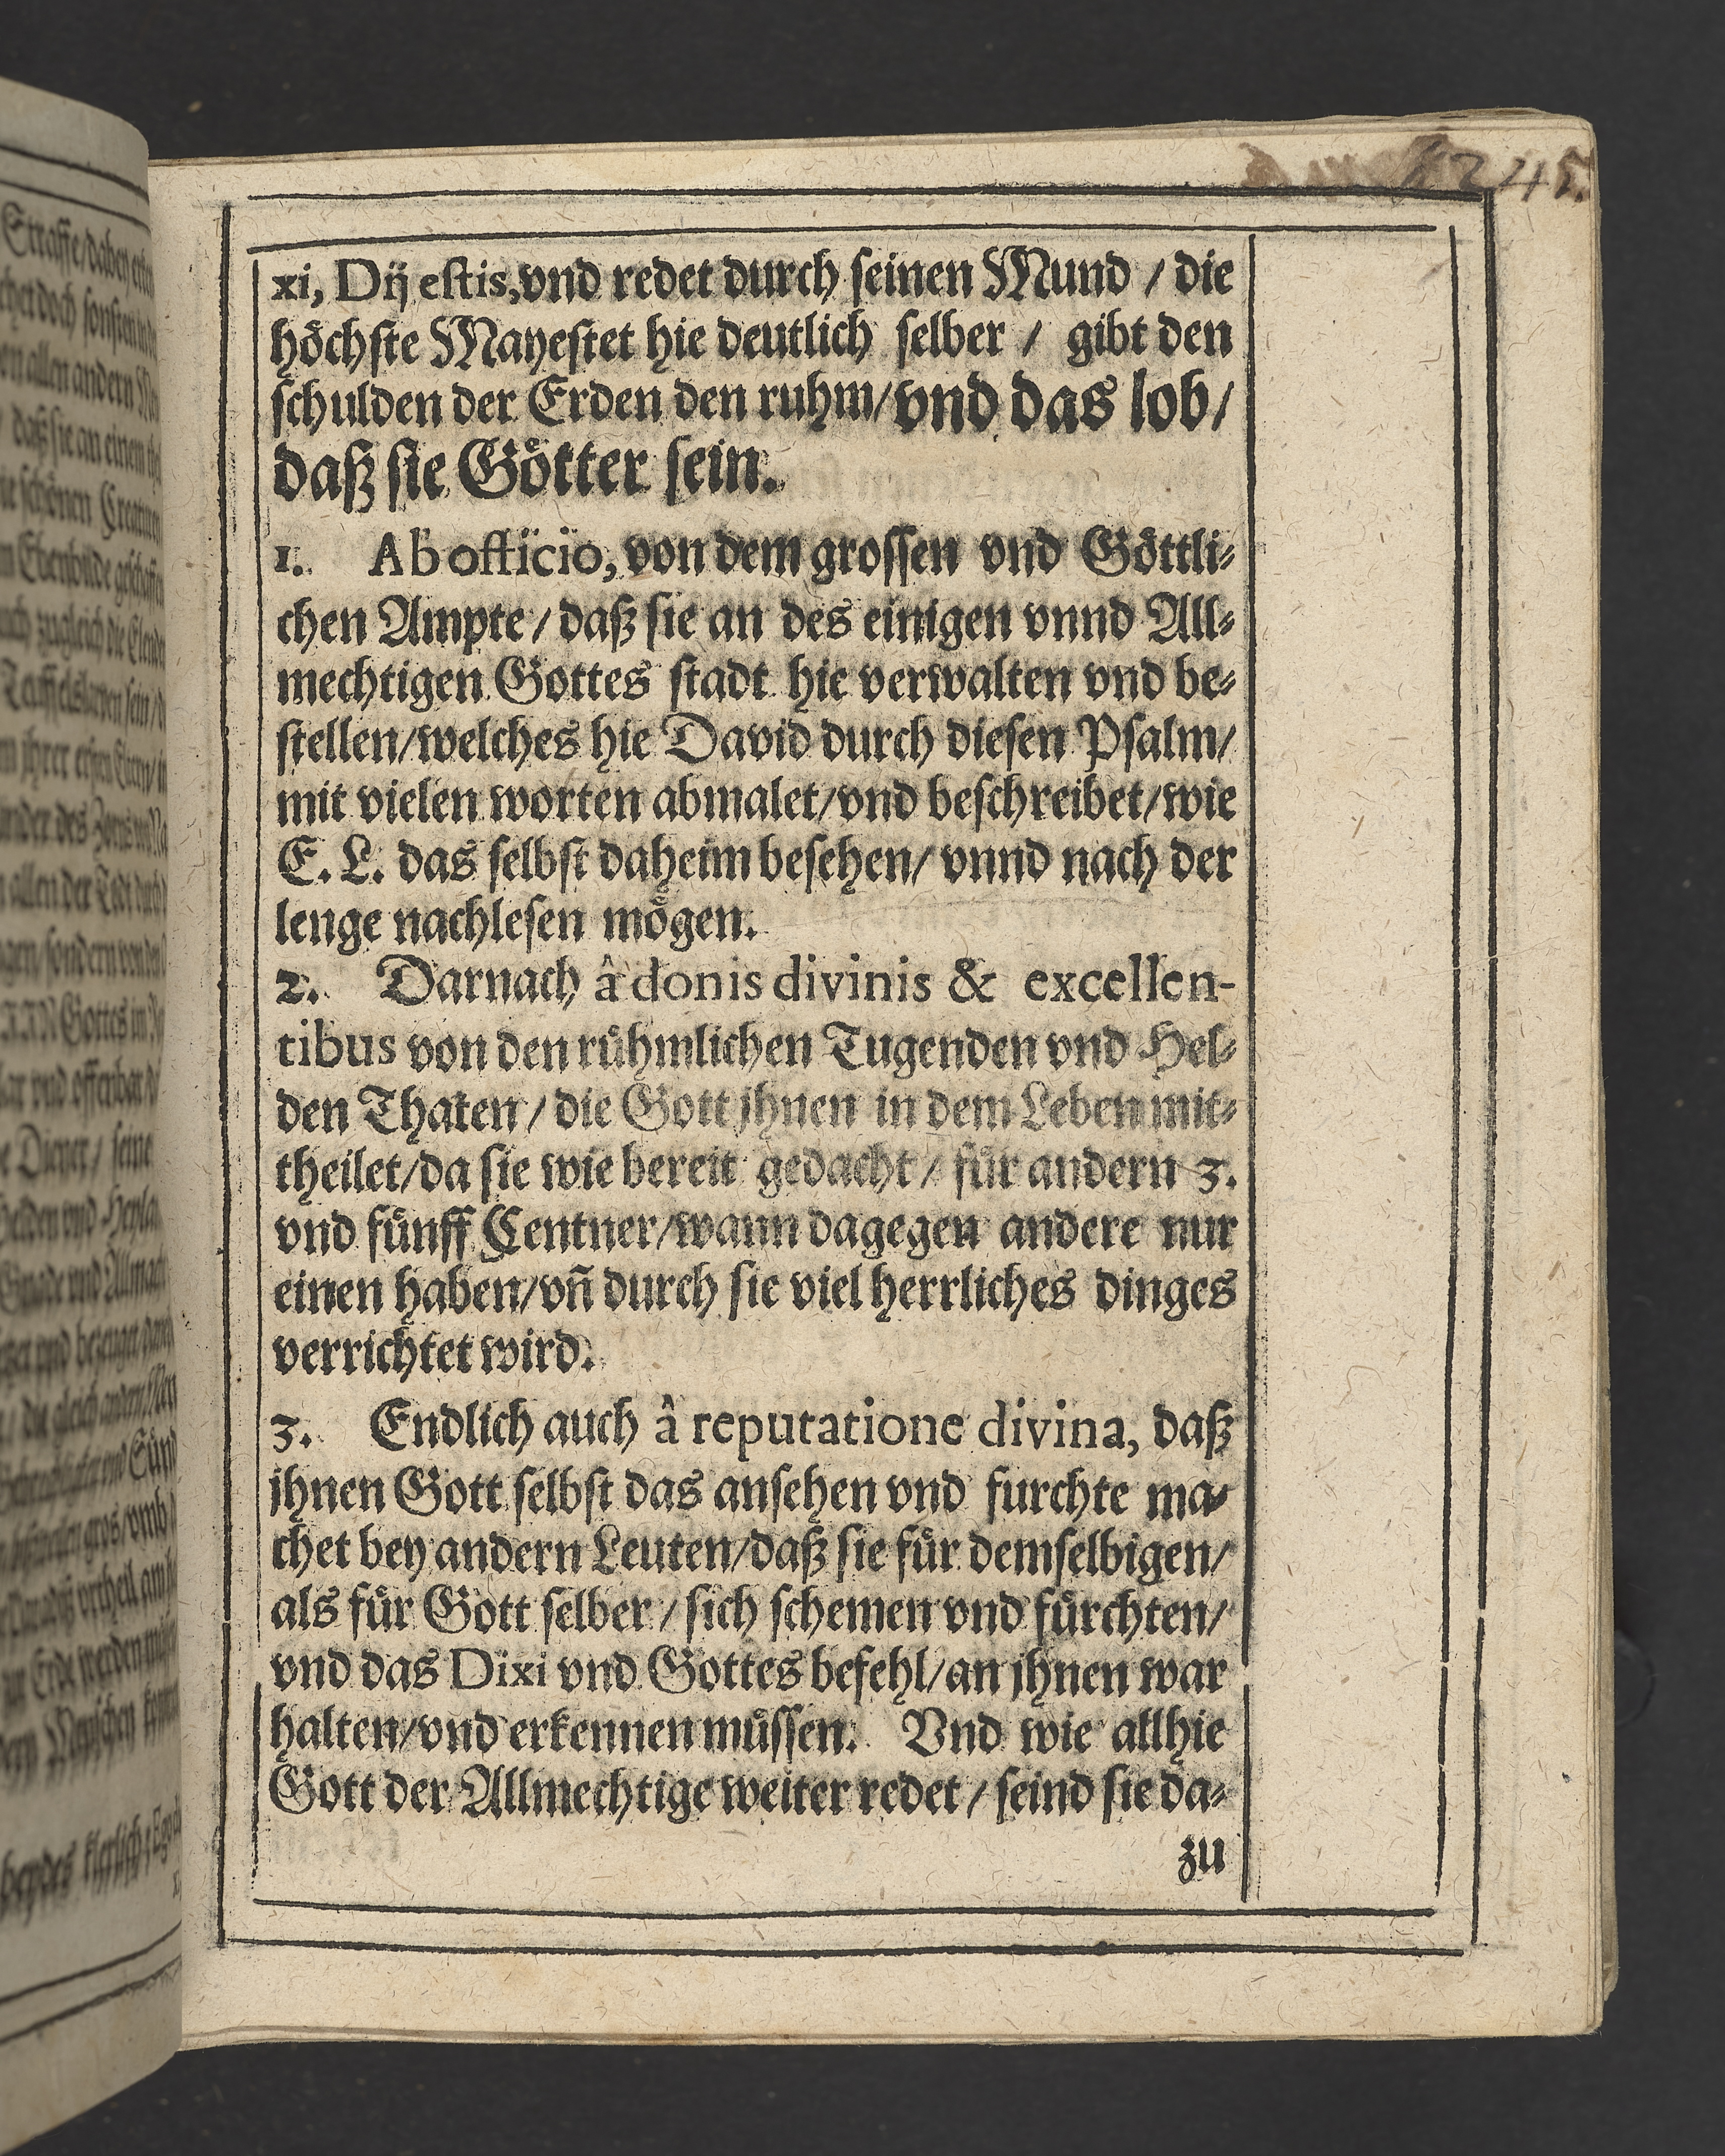 245.
xi, Dij estis, vnd redet durch seinen Mund / die
höchste Mayestet hie deutlich selber / gibt den
schulden der Erden den ruhm/ vnd das lob/
daß sie Götter sein.
1. Ab officio, von dem grossen vnd Göttli-
chen Ampte / daß sie an des einigen vnnd All-
mechtigen Gottes stadt hie verwalten vnd be-
stellen/ welches hie David durch diesen Psalm/
mit vielen worten abmalet/ vnd beschreibet/ wie
E. L. das selbst daheim besehen/ vnnd nach der
lenge nachlesen mögen.
2. Darnach â donis divinis & excellen-
tibus von den rühmlichen Tugenden vnd Hel-
den Thaten / die Gott jhnen in dem Leben mit-
theilet/ da sie wie bereit gedacht / für andern 3.
vnd fünff Centner/ wann dagegen andere nur
einen haben/ vñ durch sie viel herrliches dinges
verrichtet wird.
3. Endlich auch â reputatione divina, daß
jhnen Gott selbst das ansehen vnd furchte ma-
chet bey andern Leuten/ daß sie für demselbigen/
als für Gott selber / sich schemen vnd fürchten/
vnd das Dixi vnd Gottes befehl/ an jhnen war
halten/ vnd erkennen müssen. Vnd wie allhie
Gott der Allmechtige weiter redet / seind sie da-
zu